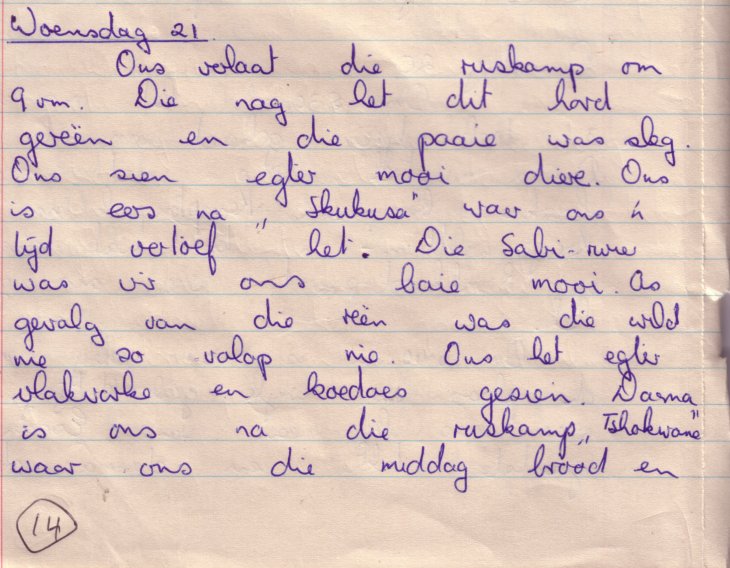 Woensdag 21.
Ons verlaat die ruskamp om
9 vm. Die nag het dit hard
gereën en die paaie was sleg.
Ons sien egter mooi diere. Ons
is eers na „Skukusa" waar ons 'n
tyd vertoef het. Die Sabi-rivier
was vir ons baie mooi. As
gevolg van die reën was die wild
nie so volop nie. Ons het egter
vlakvarke en koedoes gesien. Daarna
is ons na die ruskamp „Tshokwane"
waar ons die middag brood en
14